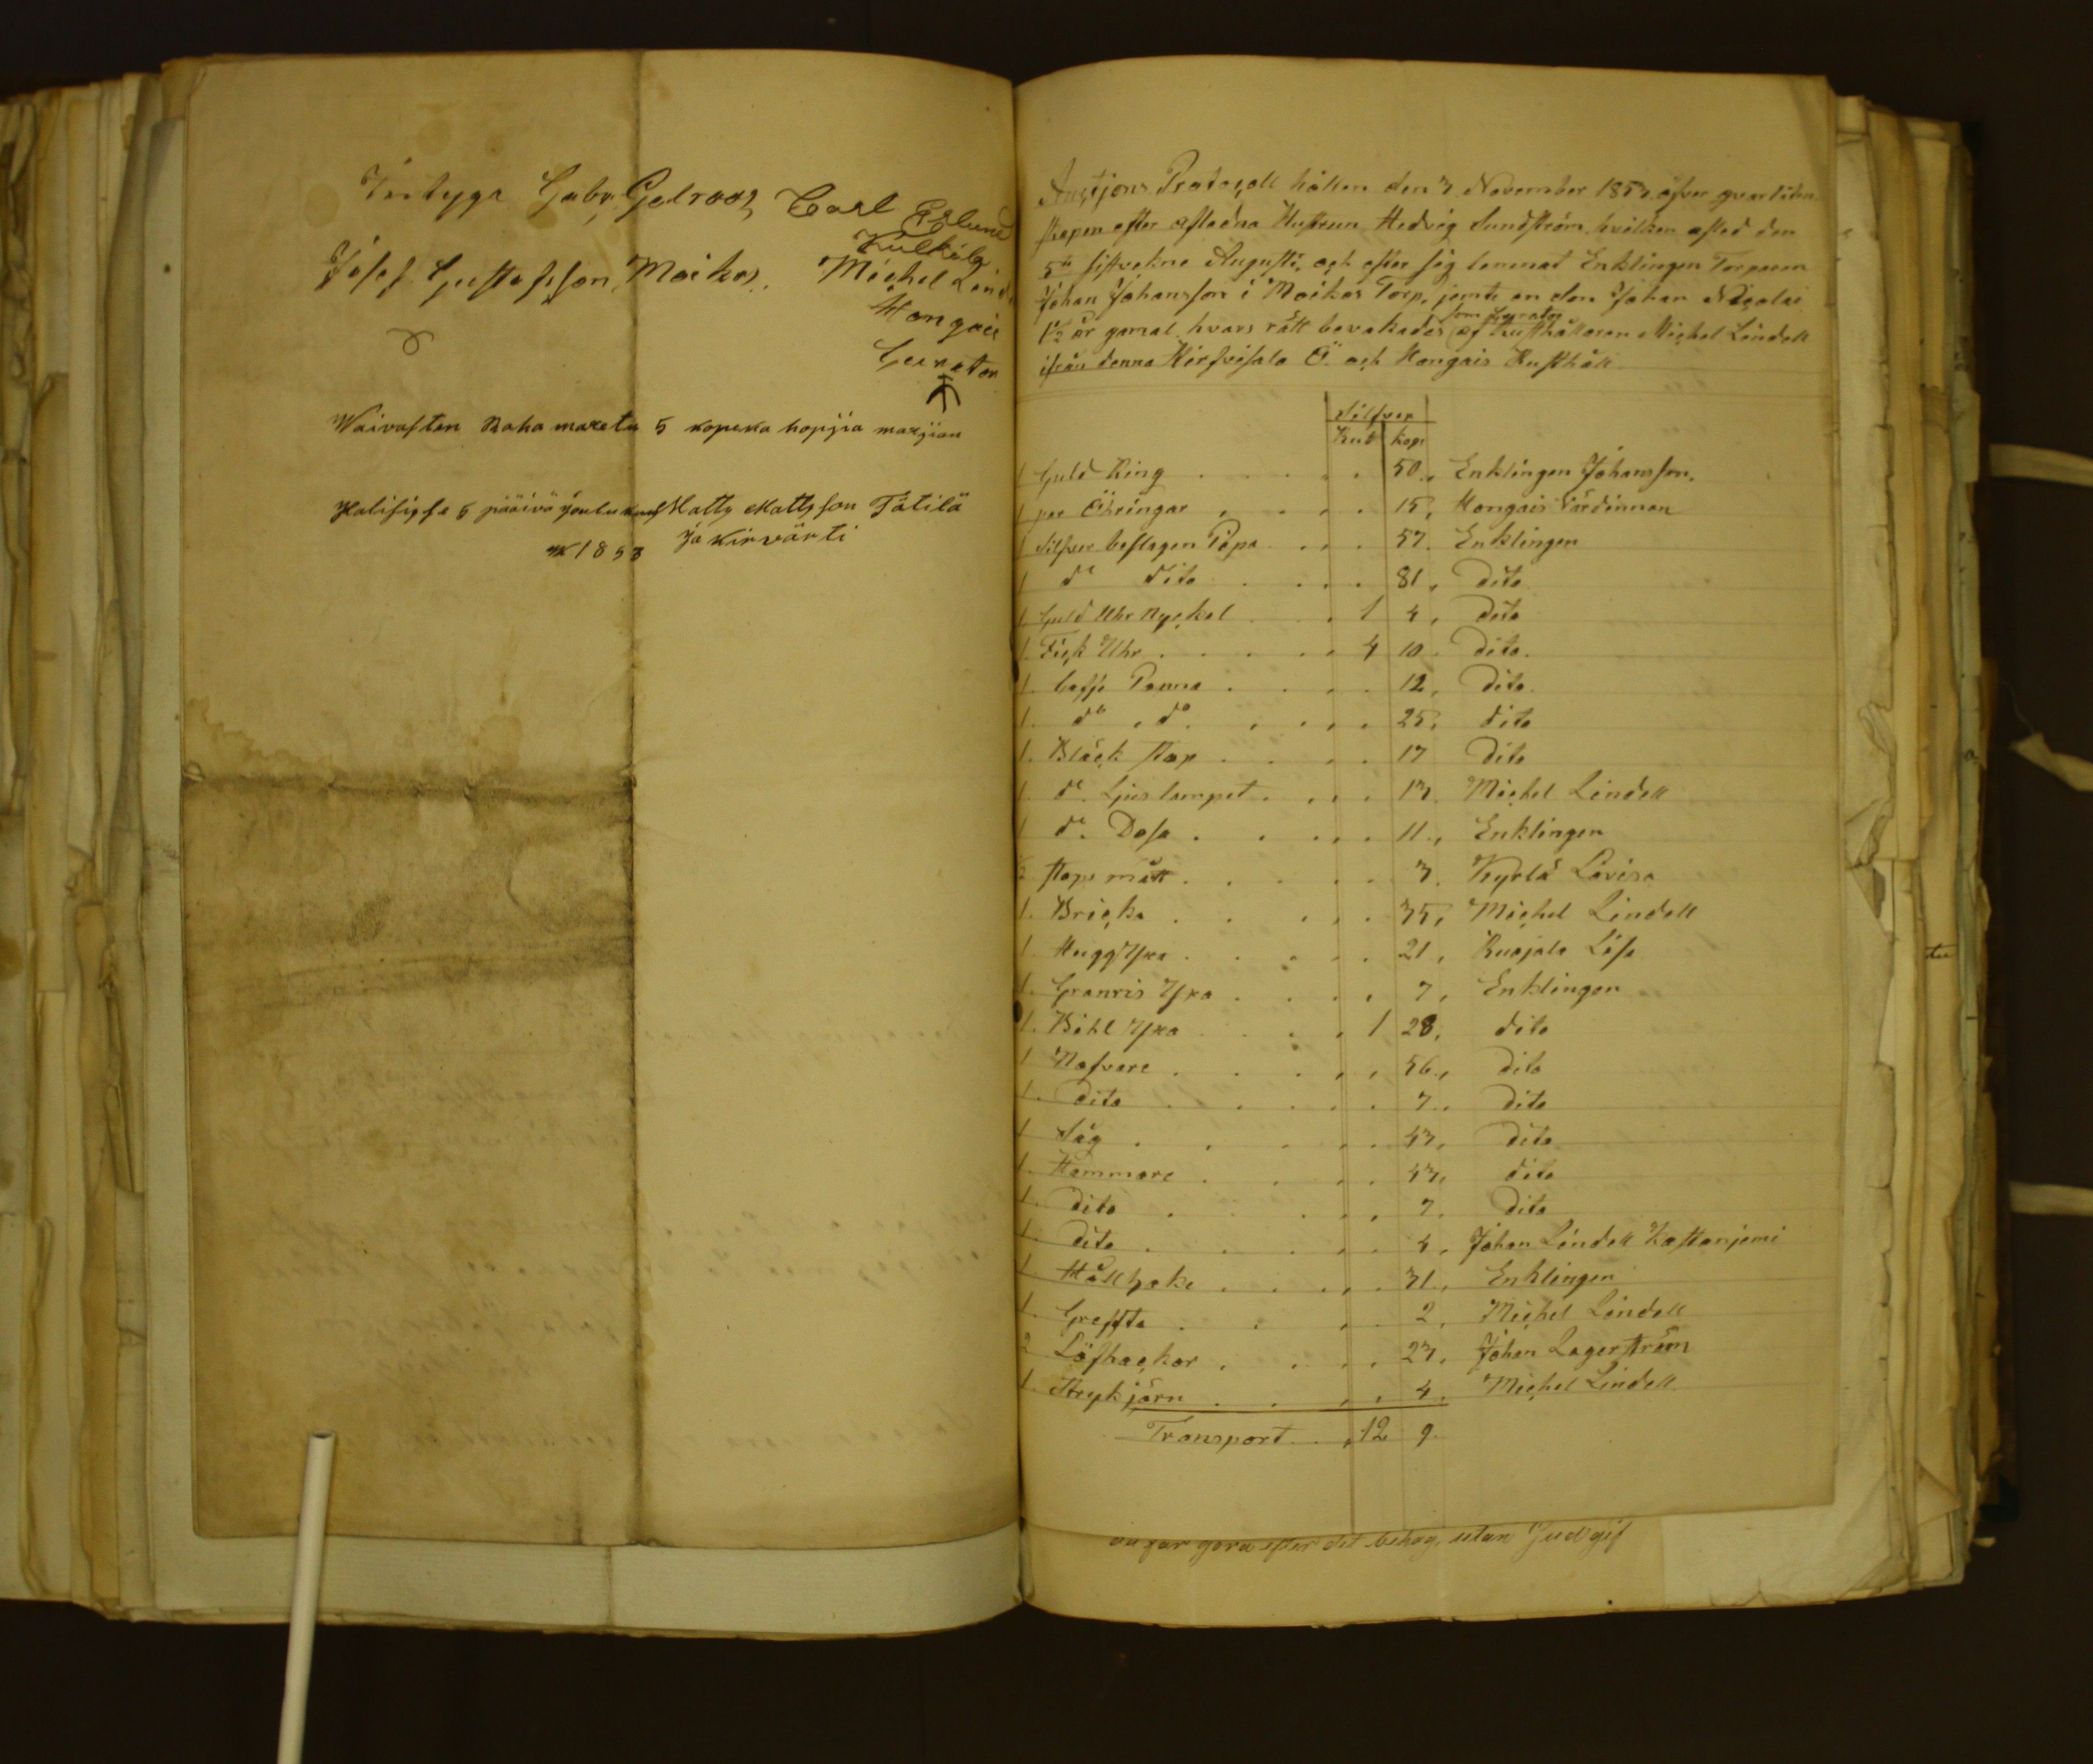 Intyga Gabr, Gelroos, Carl Eklund
Kulkila
Josef Gustafsson, Moikos. Michel Lind
Hongais
Curator
Waivasten Raha maxetu 5 kopeka hopjia maxjian
Halisissa 5 päivä joulukuus Matts Mattsson Tätilä
1853 ja kirvärti
Auctjons Protocoll hållen den 3 November 1853 öfver qvarlåten
skapen efter afledna Hustrun Hedvig Sundström hvilken afled den
5te sistvekne Augusti, och efter sig lemnat Enklingen Torparen
Johan Johansson i Moikos Torp, jemte en son Johan Nicolai
som Curator
1½ år gamal, hvars rätt bevakades af Rusthållaren Michel Lindell
ifrån denna Hirfvisalo Ö och Hongais Rusthåll
Silfver
Rub kop
1 Guld Ring . . . . . 50., Enklingen Johansson.
1 par Öhringar . . . . 15, Hongais Värdinnan
1 Silfver beslagen Pipa . . . 57. Enklingen
1 do dito . . . . 81, dito
1. Guld Uhr Nyckel . . 1 4, dito
1. Fick Uhr . . . . . 4 10. Dito.
1. Caffe Panna . . . . 12, dito.
1. do, do. . . . . 25, dito
1. Bläck stop . . . . 17 dito
1 do. Ljus lampet . . . . 13. Michel Lindell
1 do. Dosa . . . . . 11., Enklingen
½ stops mått . . . . . 3. Kyrlä Lovisa
1. Bricka . . . . . 35, Michel Lindell
1. Hugg Yxa . . . . . 21, Ruojala Lisa
1. Granris Yxa . . . . 7, Enklingen
1. Bihl Yxa . . . . 1 28, dito
1 Nafvare . . . . . 56., dito
1. Dito . . . . . 7., Dito
1 Såg . . . . . 43, dito
1. Hammare . . . . 43, dito
1. dito . . . . . 7. Dito
1. dito . . . . . 4, Johan Lindell Kastanjemi
1 Håll hake . . . . . 31., Enklingen
1. Grefsta . . . . 2, Michel Lindell
2 Löfhackor . . . . 23, Johan Lagerström
1. Strykjärn . . . . 4. Michel Lindell
Transport . . , 12 9.
göra efter det behag, utan